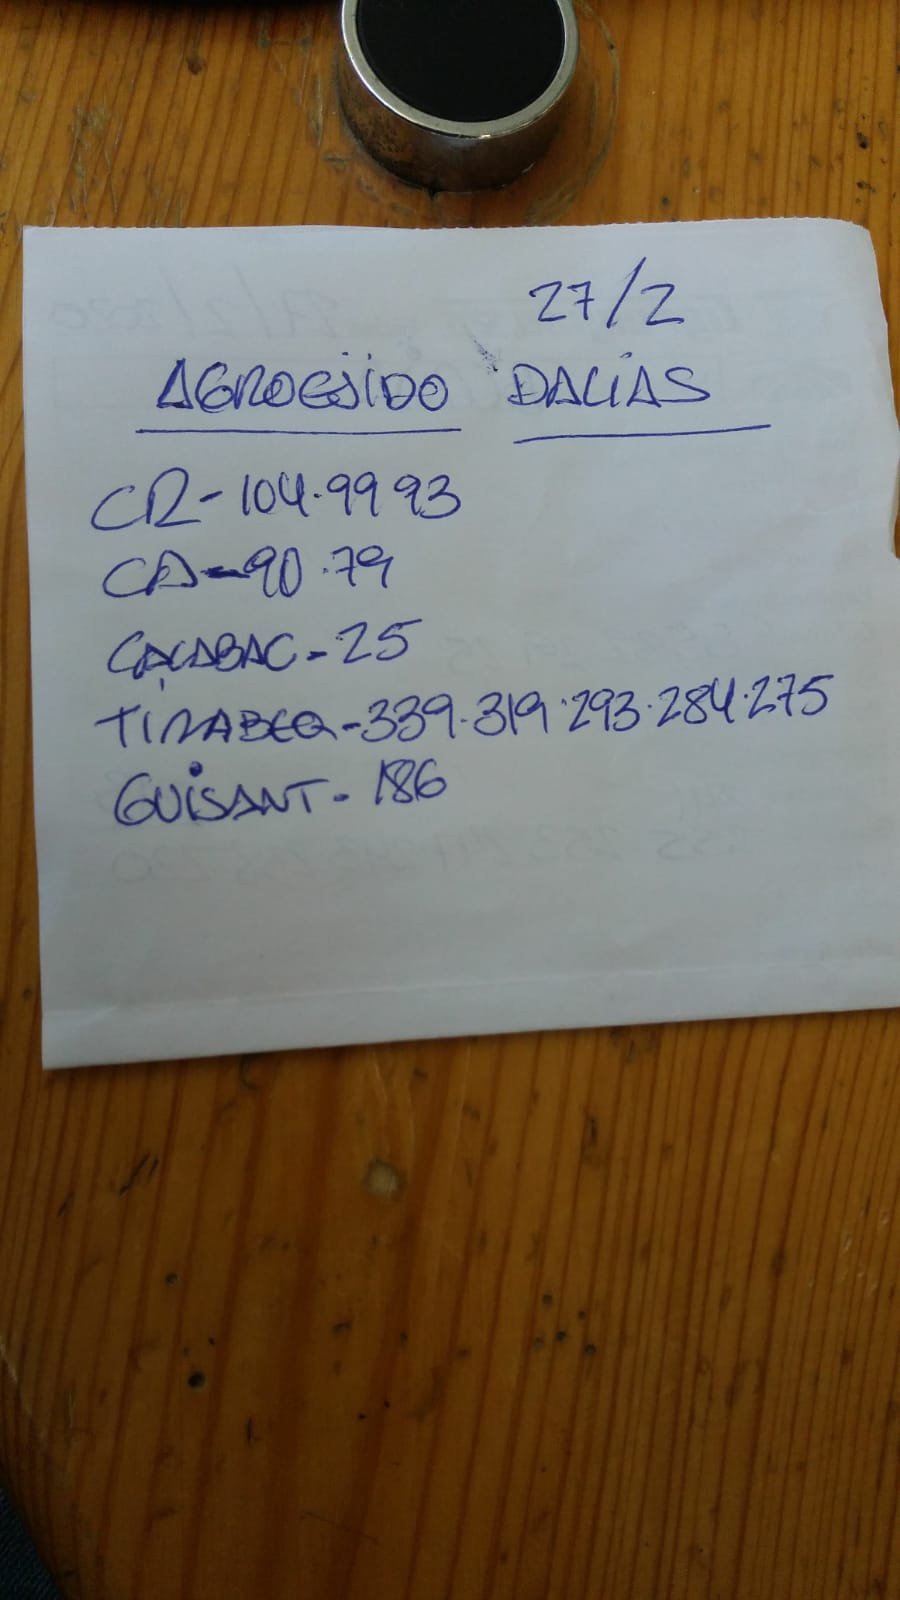 27/2
AGROEJIDO DALIAS
CR-104.99 93
CA-90.79
CALABAC-25
TIRABEQ-339.319.293.284.275
GUISANT-186